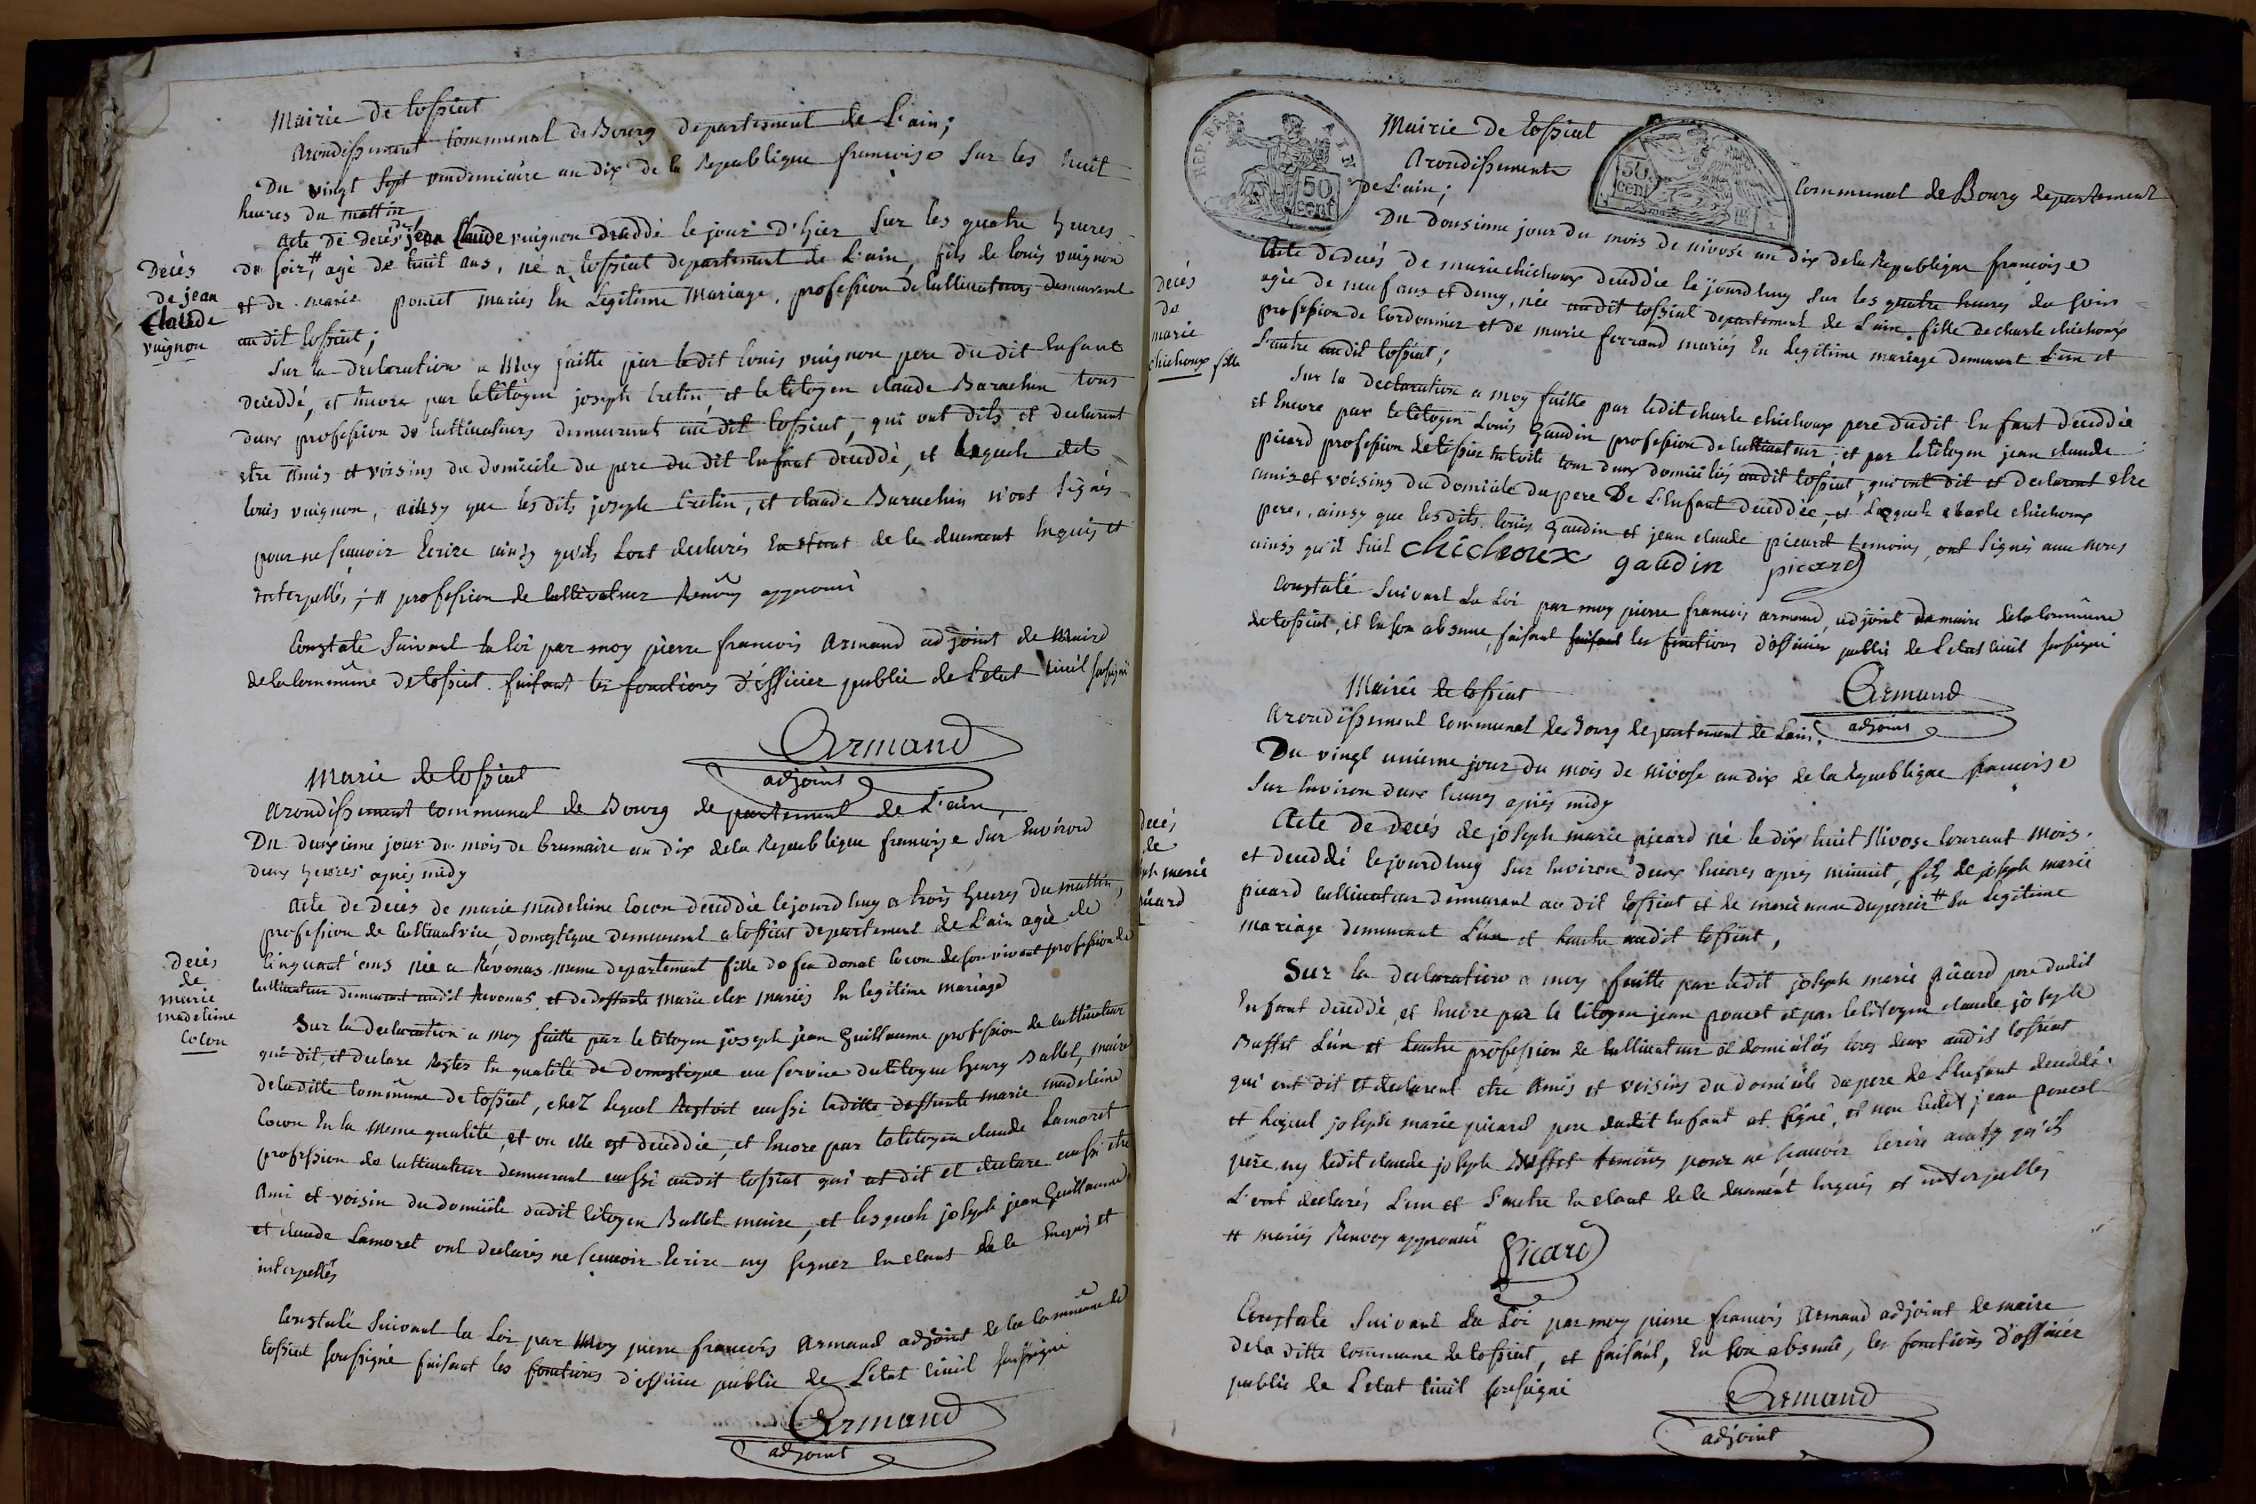 Mairie de tossiat
Arondissement Communal de Bourg departement de L'ain;
Du vingt sept vendemiaire an dix de la Republique francoise sur les huit
heures du mattin
Acte de decès de jean Claude vuignon décéddé le jour d'hier sur les quatre heures
du soir, # agé de huit ans, né a tossiat departement de L'ain, fils de louis vuignon
et de marie poncet mariés En Legitime Mariage, profession de Cultivateurs demeurant
au dit tossiat;
Decès
de jean
Claude
vuignon
Sur la declaration a Moy faitte par ledit louis vuignon pere du dit Enfant
deceddé, et Encore par le Citoyen joseph Cretin, et le Citoyen claude Barachin tous
deux profession de Cultivateurs demeurant au dit tossiat, qui ont dits et declarent
etre amis et voisins du domicile du pere du dit Enfant deceddé, et lequels dit
louis vuignon, ainsy que les dits joseph Cretin, et claude Barachin n'ont signés
pour ne scavoir Ecrire ainsy qu'ils Lont declarés Enstant de le duement Enquis et
interpellés; # profession de Cultivateur Renvoy approuvé
Constaté suivant la loi par moy pierre francois Armand adjoint de Maire
de la Commune de tossiat faisant les fonctions d'officier public de l'etat Civil sousigné
Armand
adjoint
Marie de tossiat
Arondissement Communal de Bourg departement de L'ain
Du deuxieme jour du mois de brumaire an dix de la Republique francoise sur Environ
deux heures après midy
Acte de decès de marie madeleine Cocon deceddée lejourdhuy a trois heures du mattin,
profession de Cultivatrice, domestique demeurant a tossiat departement de L'ain agée de
Cinquant ans née a Revonas meme departement fille de feu donat Cocon de son vivant profession de
Cultivateur demeurant audit Revonas, et de deffunte marie mariés En legitime mariage
decès
de
marie
madeleine
Cocon
Sur la declaration a moy faitte par le Citoyen joseph jean Guillaume profession de Cultivateur
qui dit, et declare Rester En qualité de domestique au service du Citoyen henry Ballet, maire
de laditte Commune de tossiat, chez lequel Restoit aussi laditte deffunte marie madeleine
Cocon En la meme qualité, et ou elle est deceddée, et Encore par le Citoyen claude Lamoret
profession de Cultivateur demeurant aussi audit tossiat qui at dit et declare aussi être
Ami et voisin du domicile dudit Citoyen Ballet maire, et lesquels joseph jean Guillaume,
et claude Lamoret ont declarés ne scavoir Ecrire ny signer Enstant de le Enquis et
interpellés
Constaté Suivant la Loi par moy pierre francois Armand adjoint de la Commune de
tossiat soussigné faisant les fonctions d'officie public de L'etat Civil sousigné
Armand
adjoint
REP. FRA. AIN
50
cent
Mairie de tossiat
Arondissement
50
cent
Communal de Bourg departement
de L'ain;
Du dousieme jour du mois de nivose an dix de la Republique francoise
Acte de decès de marie chichoux deceddée lejourdhuy sur les quatre heures du soir
agée de neuf ans et demy, née audit tossiat departement de L'ain, fille de charle chichoux
profession de Cordonnier et de marie ferrand mariés En Legitime mariage demeurant L'un et
L'autre audit tossiat;
decès
de
marie
chichoux fille
Sur la declaration a moy faitte par ledit charle chichoux pere dudit Enfant deceddée
et Encore par le Citoyen Louis Gaudin profession de Cultivateur, et par le Citoyen jean claude
picard profession de tissier en toile tout deux domiciliés audit tossiat, qui ont dit et declarent etre
amis et voisins du domicile du pere De L'Enfant deceddée, et Lesquels charle chichoux
pere, ainsy que lesdits louis Gaudin et jean claude picard temoins, ont signés avec nous
ainsy qu'il suit chichoux gaudin picard
Constaté Suivant La Loi par moy pierre francois armand, adjoint de maire de la Commune
de tossiat, et En son absence, faisant faisant les fonctions d'officier public de L'etat Civil sousigné
Armand
adjoint
Mairie de tossiat
Arondissement Communal de Bourg departement de Lain,
Du vingt unieme jour du mois de nivose an dix de la Republique francoise
sur Environ deux heures après midy
Acte de decès de joseph marie picard né le dix huit Nivose Courant mois,
et deceddé lejourdhuy sur Environ deux heures après minuit, fils de joseph marie
picard Cultivateur demeurant au dit tossiat et de marie anne duperier # En Legitime
mariage demeurant L'un et Lautre audit tossiat,
decès
de
marie
picard
Sur la declaration a moy faitte par ledit joseph marie picard pere dudit
Enfant deceddé, et Encore par le Citoyen jean poncet et par le Citoyen claude joseph
Buffet L'un et Lautre profession de Cultivateur et domiciliés tous deux audit tossiat
qui ont dit et declarent etre Amis et voisins du domicile du pere de L'Enfant deceddé,
et lequel joseph marie picard pere dudit Enfant at signé, et non ledit jean poncet
pere, ny ledit claude joseph Buffet temoins pour ne scavoir Ecrire ainsy qu'il
L'ont declarés L'un et L'autre Enstant de le duement Enquis et interpellés
# mariés Renvoy approuvé
Picard
Constaté Suivant La Loi par moy pierre francois Armand adjoint de maire
de la ditte Commune de tossiat, et faisant, En son absence, les fonctions d'officier
public de L'etat Civil sousigné
Armand
adjoint